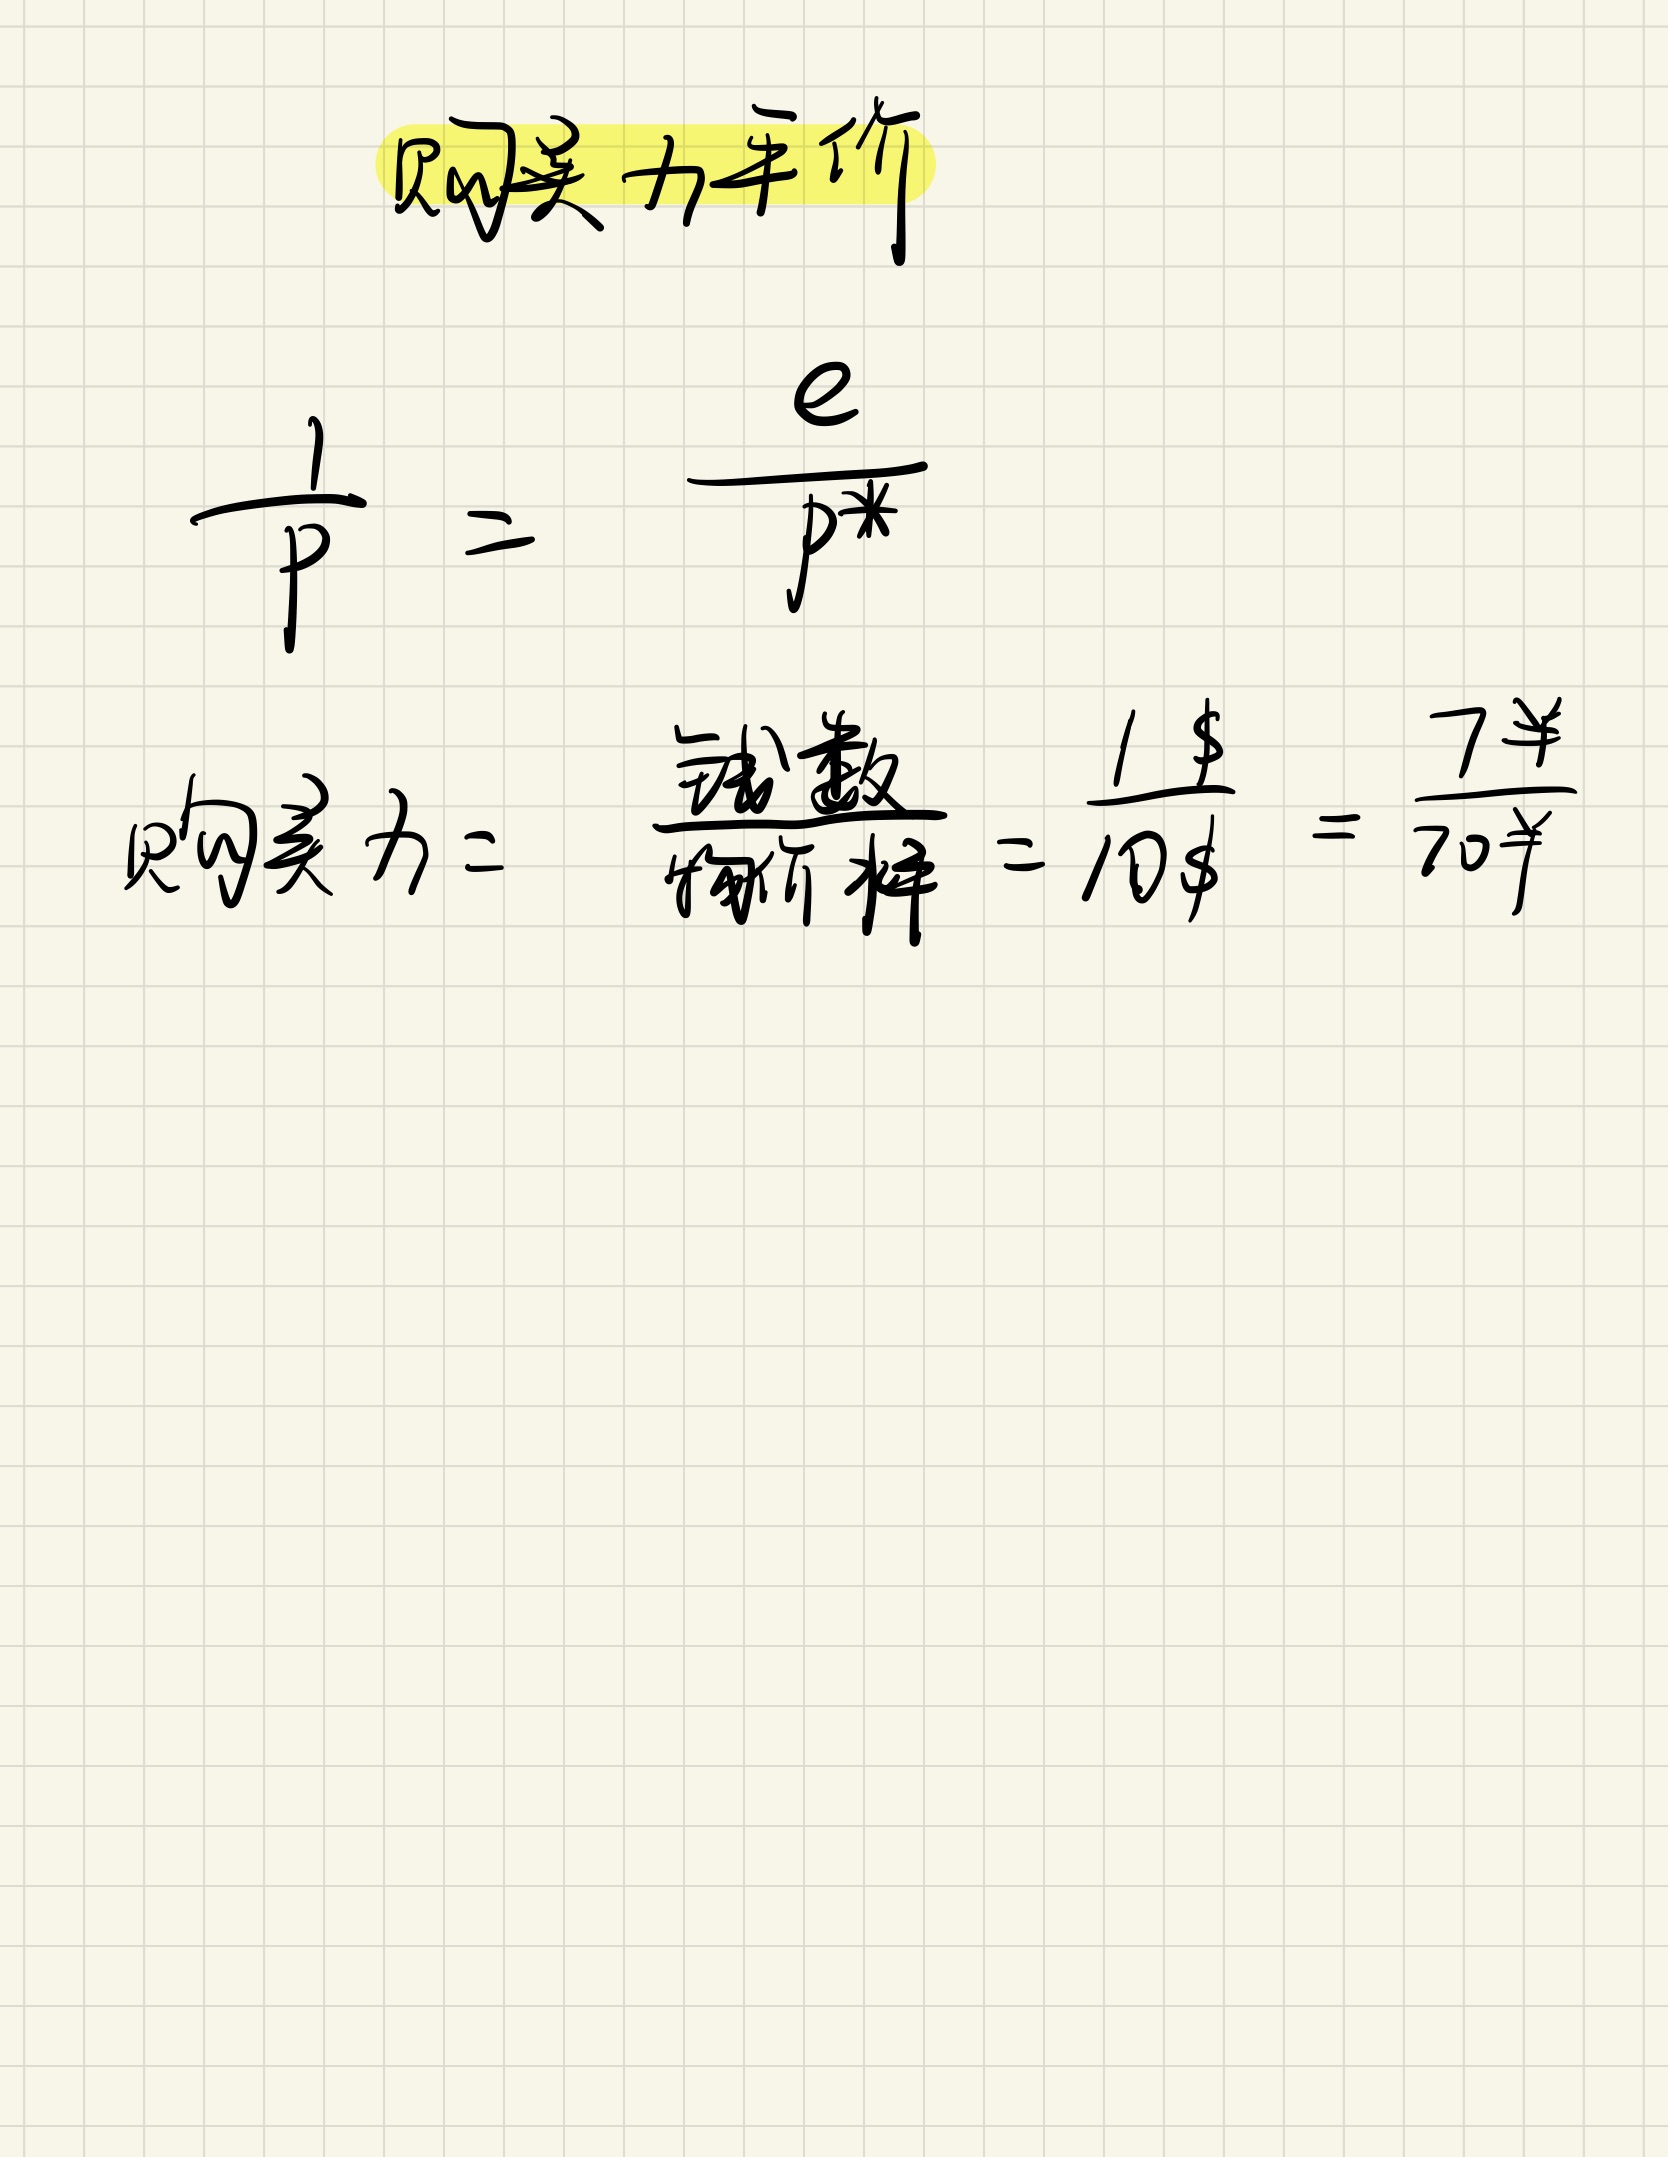 购买力平价
1/P = e/P*
购买力 = 钱数/物价 = 1$/10$ = 7¥/70¥